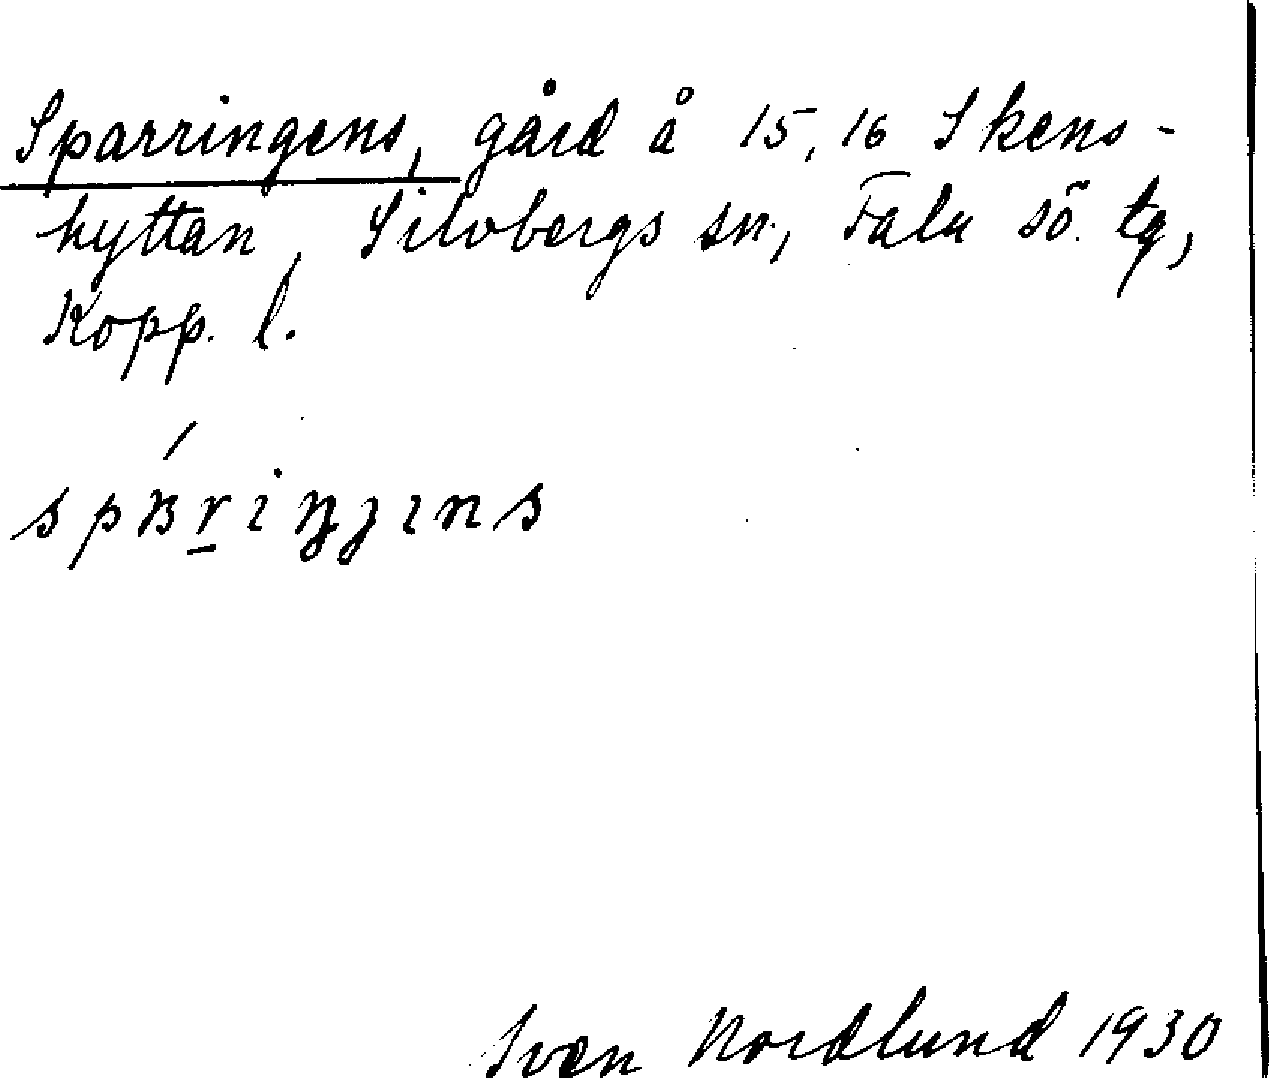 Sparringens, gård å 15, 16 Skens-
hyttan, Silvbergs sn., Falu sö. tg,
Kopp. l.
Sven Nordlund 1930